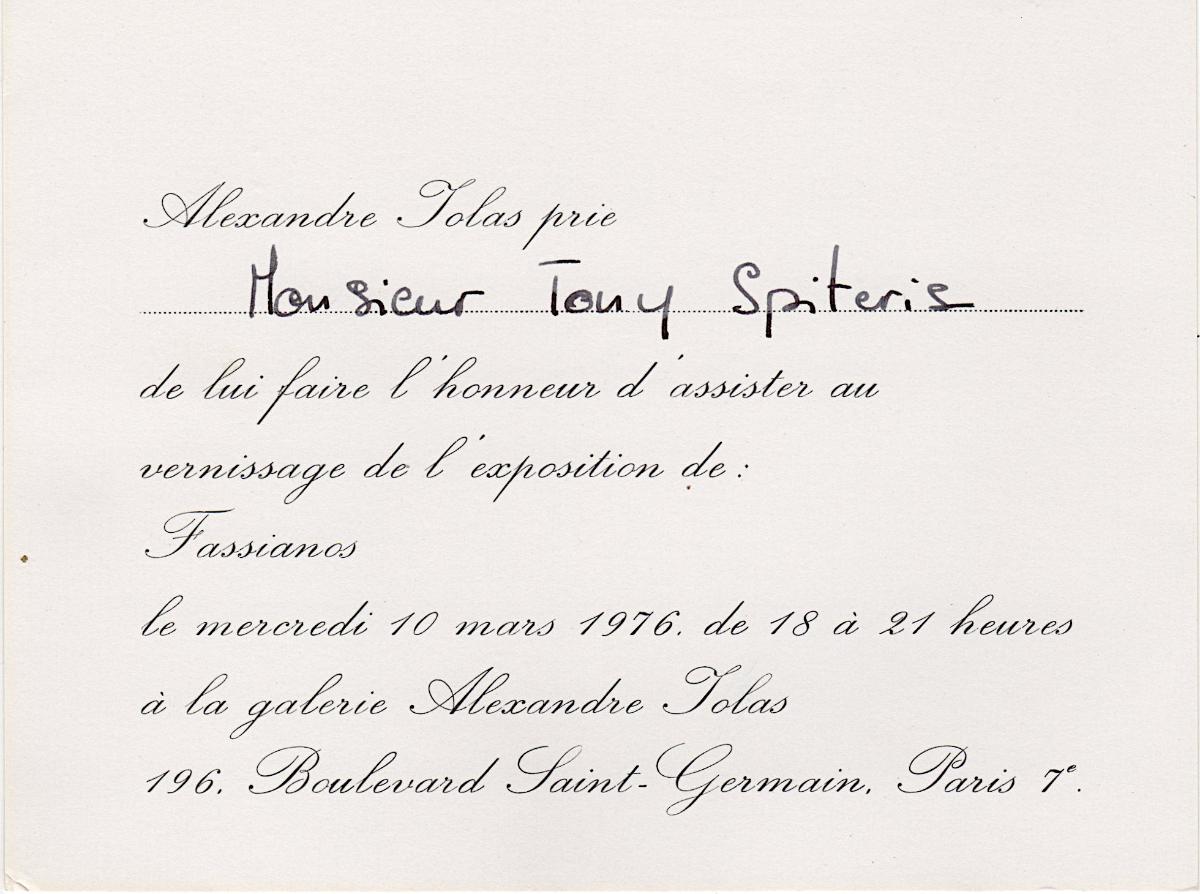 Alexandre Iolas prie
Monsieur Tony Spiteris
de lui faire l'honneur d'assister au
vernissage de l'exposition de :
Fassianos
le mercredi 10 mars 1976. de 18 à 21 heures
à la galerie Alexandre Iolas
196. Boulevard Saint-Germain. Paris 7e.